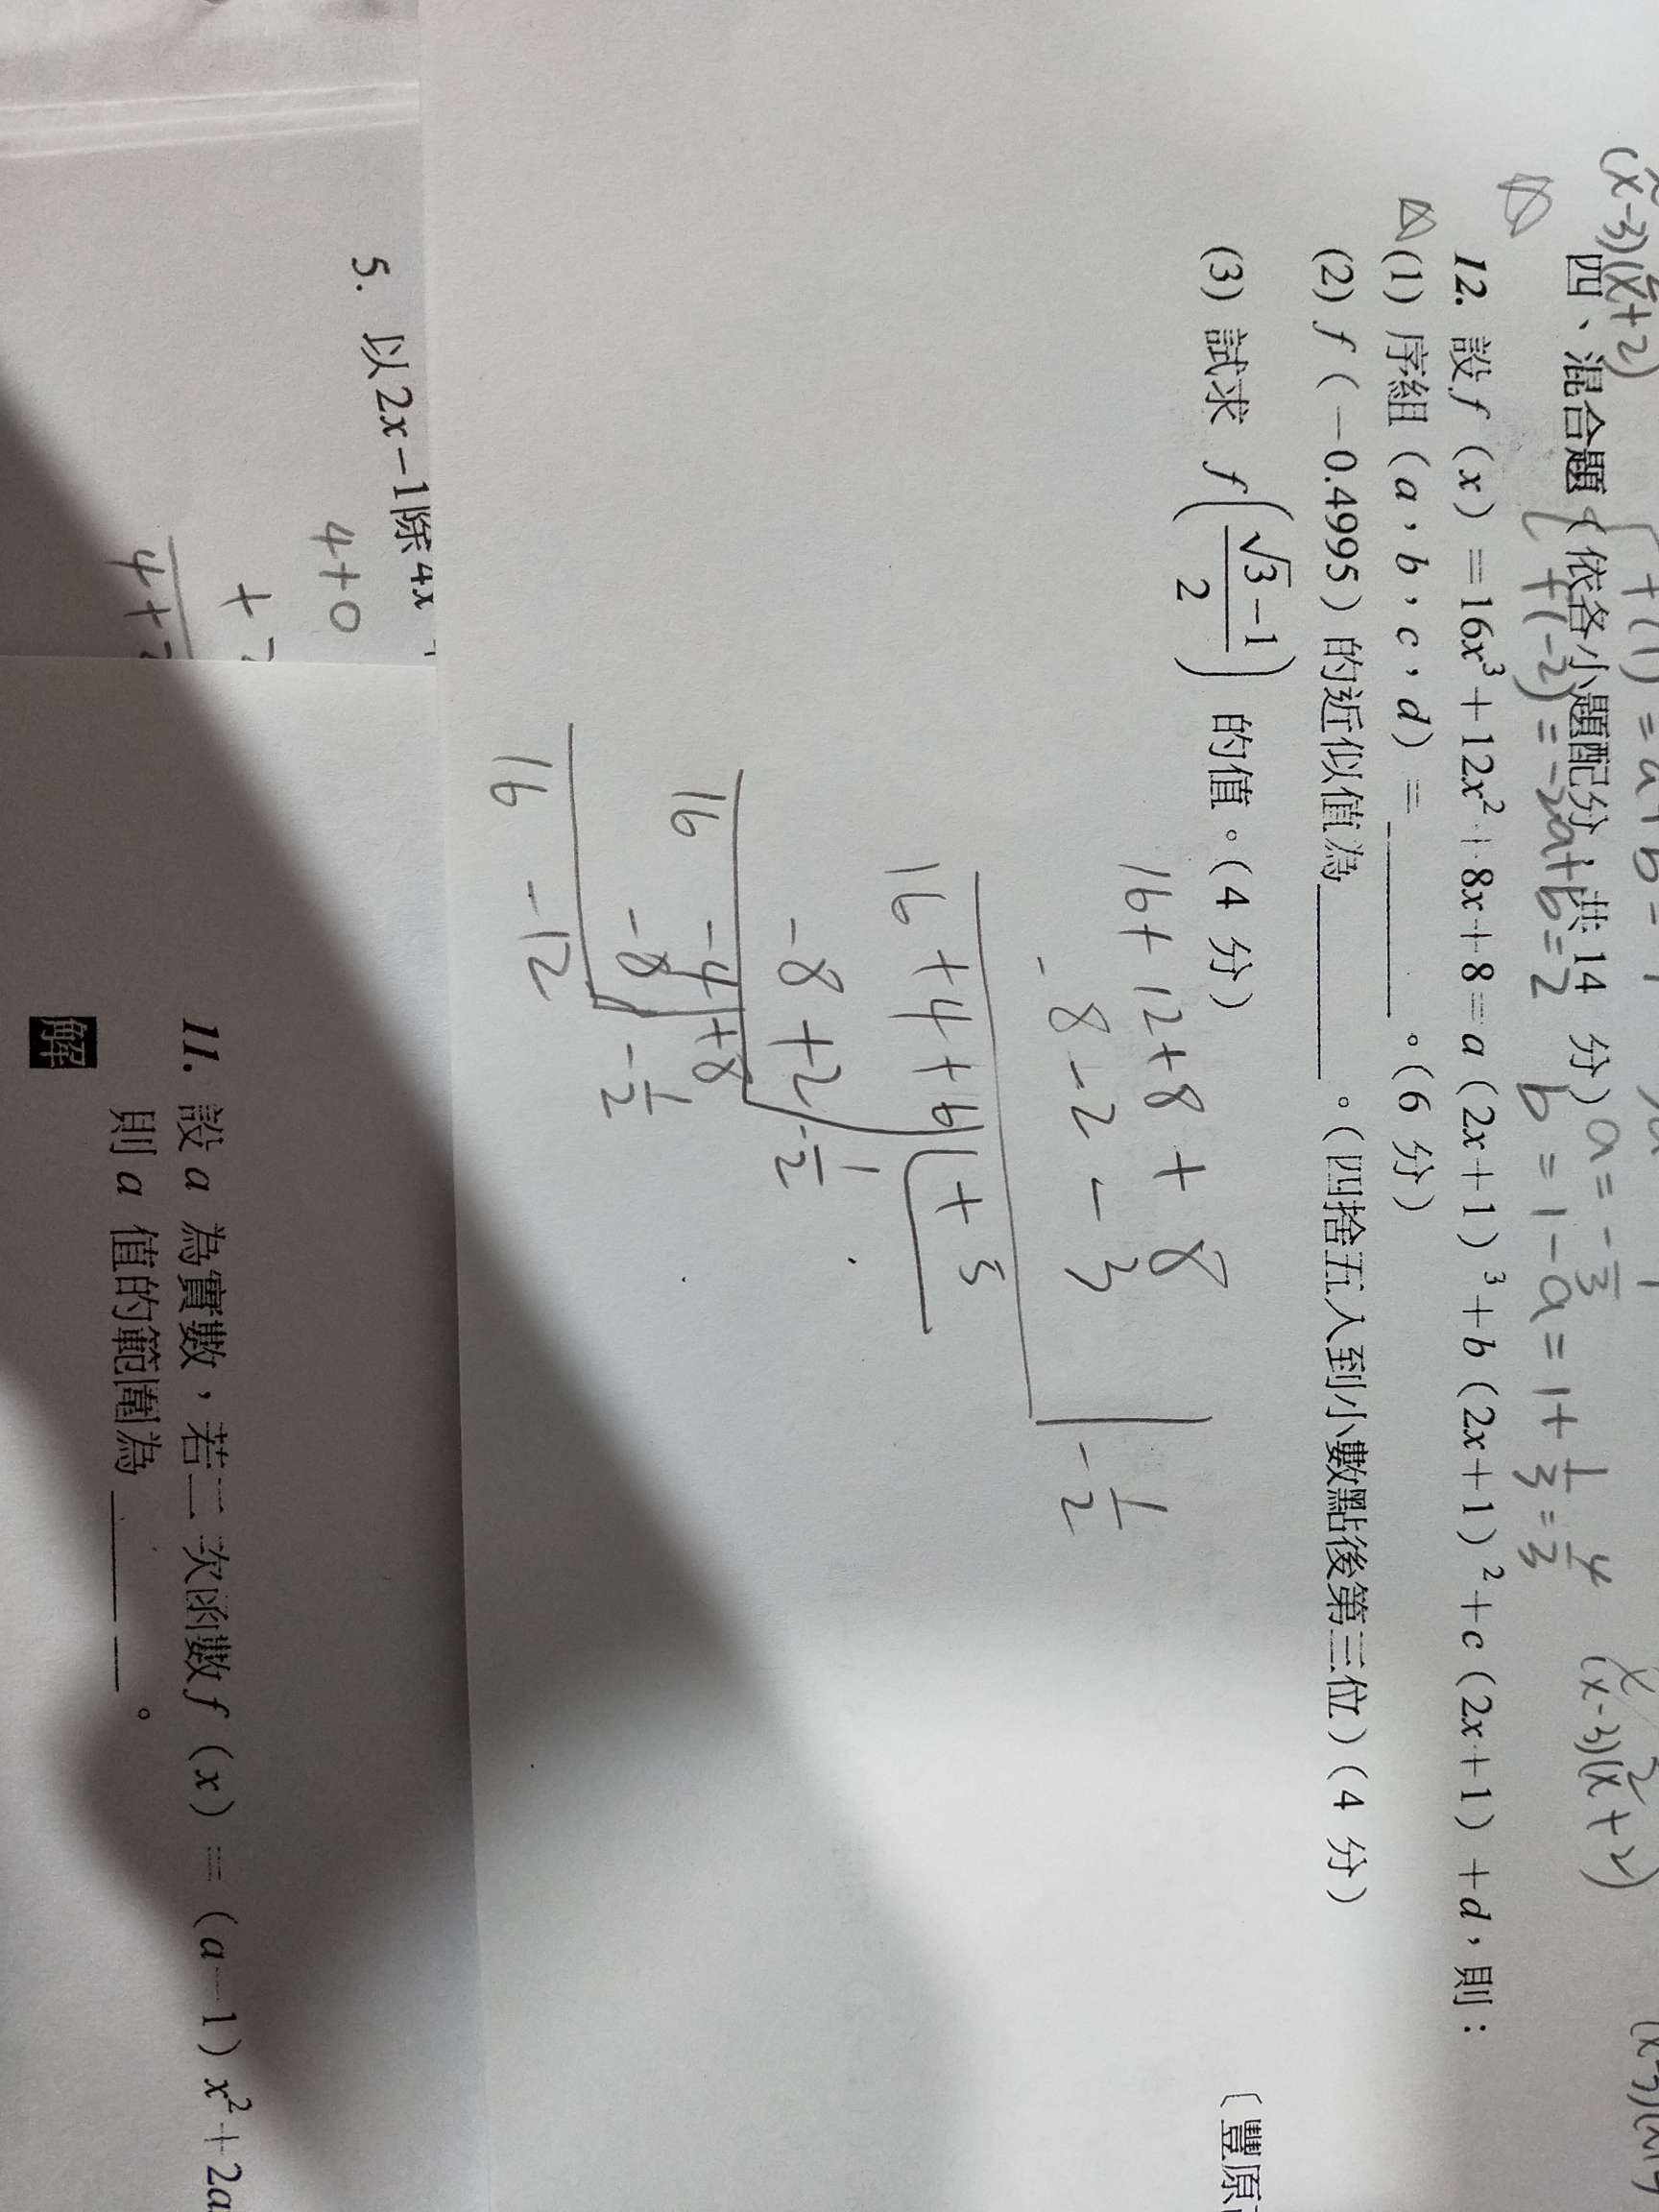 (x-3)(x²+2)
四、混合題（依各小題配分，共 14 分）
f(-2) = -2a+b=2 b = 1-a = 1+
(x-3)(x²+2)
12. 設 f（x）=16x³+12x²+8x+8=a（2x+1）³+b（2x+1）²+c（2x+1）+d，則：
(1) 序組（a，b，c，d）=________。（6 分）
(2) f（-0.4995）的近似值為________。（四捨五入到小數點後第三位）（4 分）
(3) 試求 f((√3-1)/2) 的值。（4 分）
〔豐原
16+12+8+8 | -1/2
-8-2-3
16+4+6 +5
-8+2 | -1/2
16 -4 +8
-8 | -1/2
16 -12
5. 以2x-1除4x
4+0
+
4+
11. 設 a 為實數，若二次函數 f（x）=（a-1）x²+2a
則 a 值的範圍為________。
解